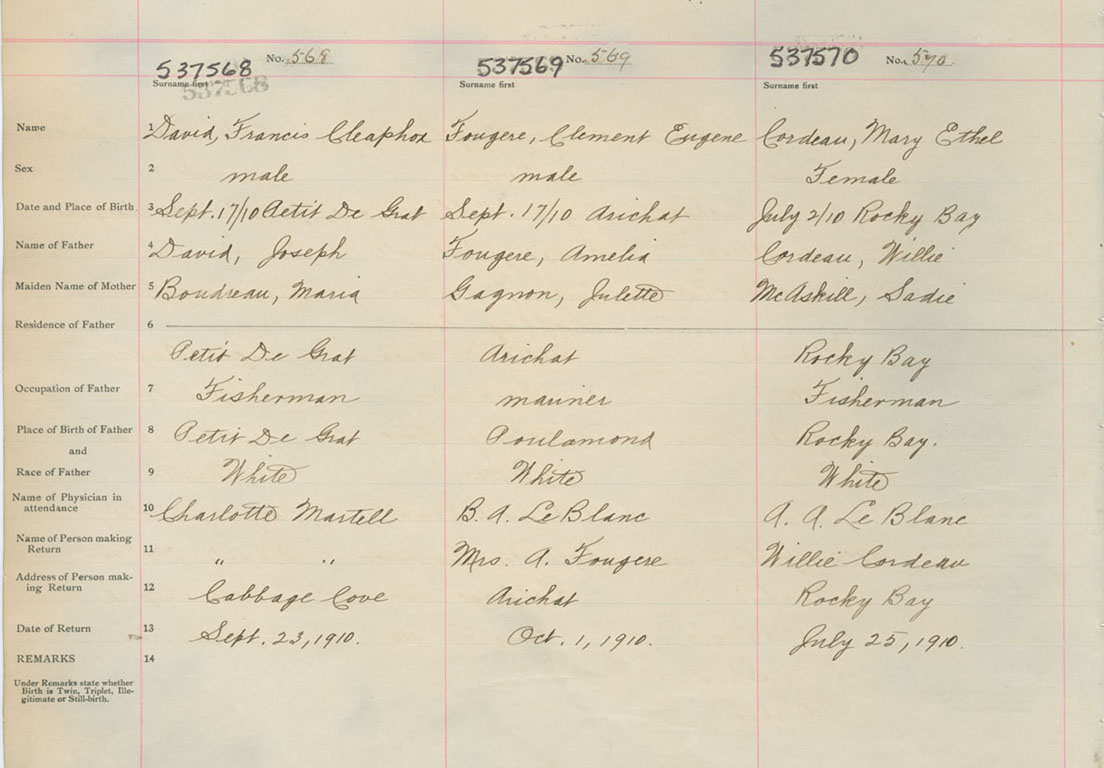 537568 No. 568 537569 No. 569 537570 No. 570
537568
Surname first Surname first Surname first
Name 1 David, Francis Cleaphos Fougere, Clement Eugene Cordeau, Mary Ethel
Sex 2 male male Female
Date and Place of Birth 3 Sept. 17/10 Petit De Grat Sept. 17/10 Arichat July 2/10 Rocky Bay
Name of Father 4 David, Joseph Fougere, Amelia Cordeau, Willie
Maiden Name of Mother 5 Boudreau, Maria Gagnon, Juliette McAskill, Sadie
Residence of Father 6
Petit De Grat Arichat Rocky Bay
Occupation of Father 7 Fisherman mariner Fisherman
Place of Birth of Father 8 Petit De Grat Poulamond Rocky Bay.
and
Race of Father 9 White White White
Name of Physician in
attendance 10 Charlotte Martell B. A. LeBlanc A. A. Le Blanc
Name of Person making
Return 11 " " Mrs. A. Fougere Willie Cordeau
Address of Person mak-
ing Return 12 Cabbage Cove Arichat Rocky Bay
Date of Return 13 Sept. 23, 1910. Oct. 1, 1910. July 25, 1910.
REMARKS 14
Under Remarks state whether
Birth is Twin, Triplet, Ille-
gitimate or Still-birth.